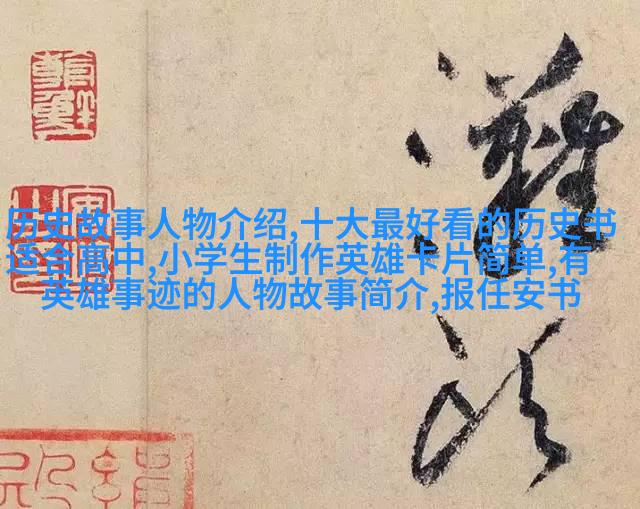 历史故事人物介绍,十大最好看的历史书
适合高中,小学生制作英雄卡片简单,有
英雄事迹的人物故事简介,报任安书